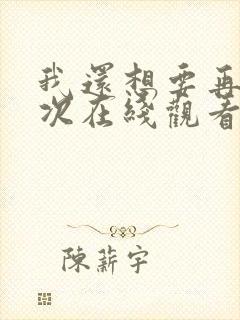 我還想要再
次在綫觀看
陳薪宇